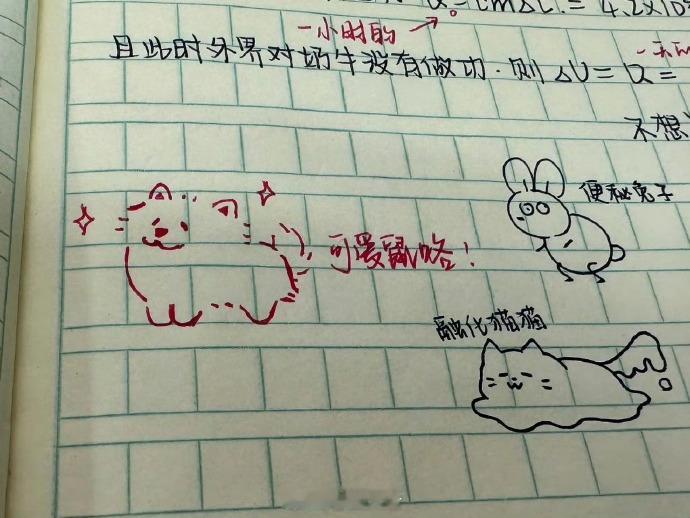 Q=cmΔt.=4.2×10³
一小时的
且此时外界对奶牛没有做功.则ΔU=Q=
不想
便秘兔子
可爱鼠咯!
融化猫猫